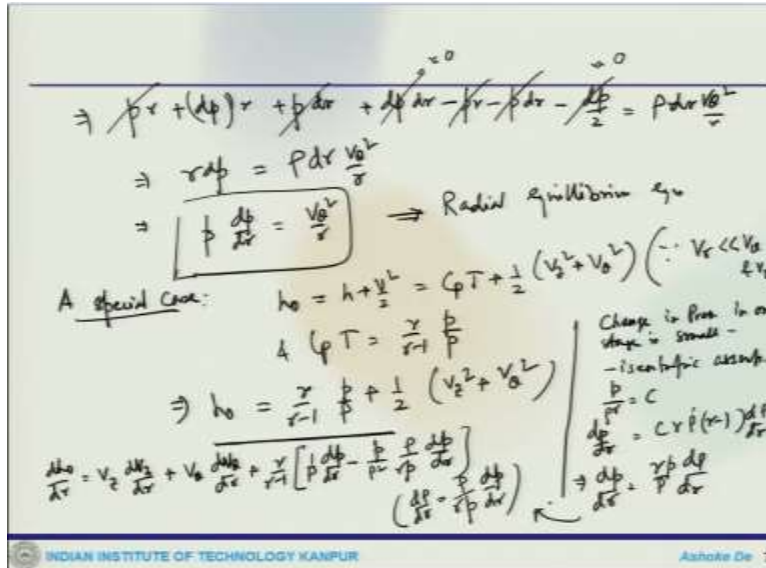 ⇒ pr + (dp) r + p dr + dp dr - pr - p dr - dp/2 = ρ dr Vθ²/r
= 0
= 0
⇒ r dp = ρ dr Vθ²/r
⇒ p dp/dr = Vθ²/r ⇒ Radial equilibrium eqn
A special case: h₀ = h + V²/2 = CpT + 1/2 (Vz² + Vθ²) (∵ Vr << Vθ
& CpT = γ/γ-1 p/ρ
⇒ h₀ = γ/γ-1 p/ρ + 1/2 (Vz² + Vθ²)
dh₀/dr = Vz dVz/dr + Vθ dVθ/dr + γ/γ-1 [1/ρ dp/dr - p/ρ² ρ/γp dp/dr]
(dρ/dr = ρ/γp dp/dr)
Change in Pres. in
stage is small -
- isentropic
p/ργ = C
dp/dr = C γ ρ(γ-1) dρ/dr
⇒ dp/dr = γp/ρ dρ/dr
INDIAN INSTITUTE OF TECHNOLOGY KANPUR
Ashoke De